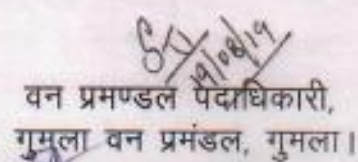 19/08/19
वन प्रमण्डल पदाधिकारी,
गुमला वन प्रमंडल, गुमला।